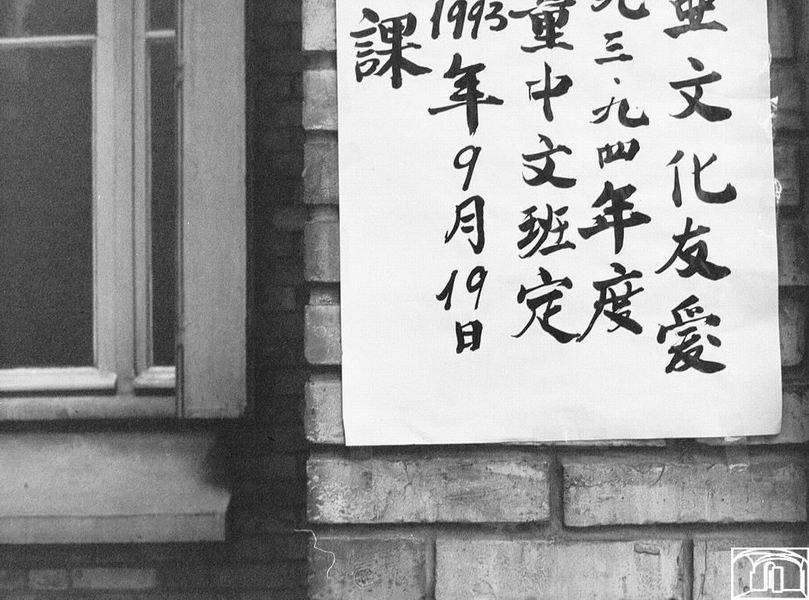 亞文化友愛
九三·九四年度
童中文班定
1993年9月19日
課